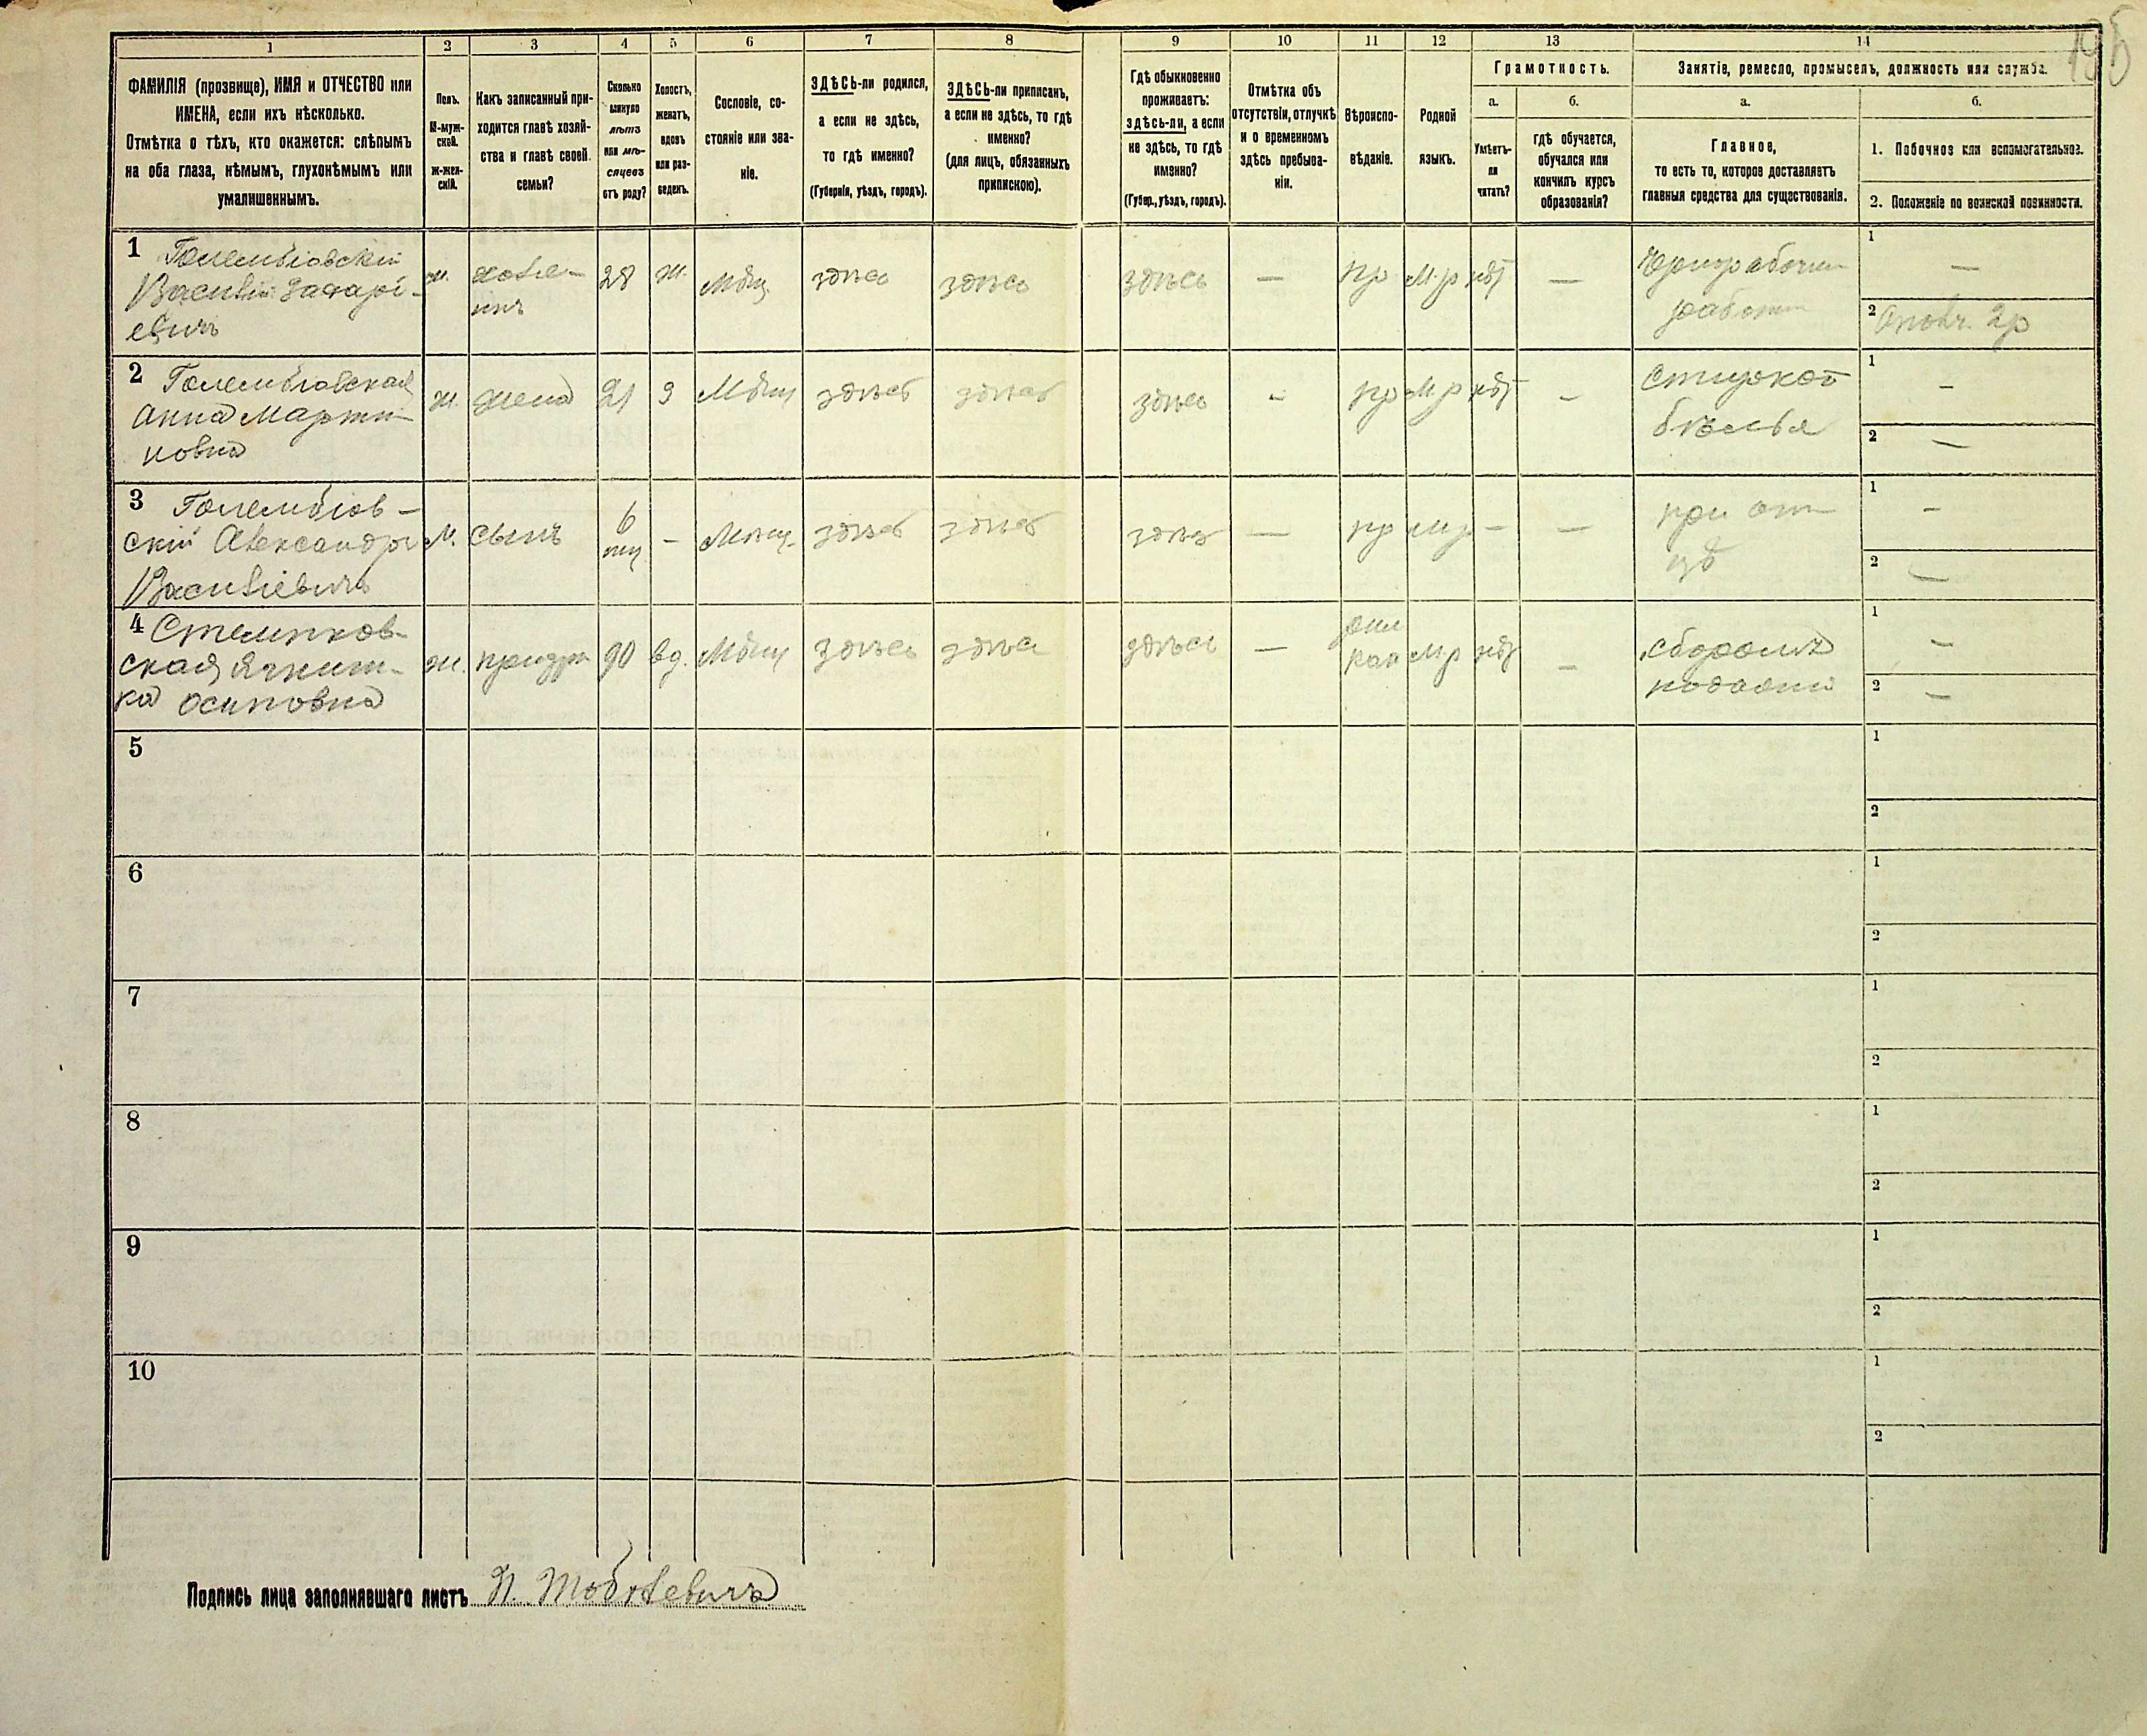 195
1 2 3 4 5 6 7 8 9 10 11 12 13 14
ФАМИЛІЯ (прозвище), ИМЯ и ОТЧЕСТВО или
ИМЕНА, если ихъ нѣсколько.
Отмѣтка о тѣхъ, кто окажется: слѣпымъ
на оба глаза, нѣмымъ, глухонѣмымъ или
умалишеннымъ.
Полъ.
М-муж-
ской.
Ж-жен-
скій.
Какъ записанный при-
ходится главѣ хозяй-
ства и главѣ своей
семьи?
Сколько
минуло
лѣтъ
или мѣ-
сяцевъ
отъ роду?
Холостъ,
женатъ,
вдовъ
или раз-
веденъ.
Сословіе, со-
стояніе или зва-
ніе.
ЗДѢСЬ-ли родился,
а если не здѣсь,
то гдѣ именно?
(Губернія, уѣздъ, городъ).
ЗДѢСЬ-ли приписанъ,
а если не здѣсь, то гдѣ
именно?
(для лицъ, обязанныхъ
припискою).
Гдѣ обыкновенно
проживаетъ:
здѣсь-ли, а если
не здѣсь, то гдѣ
именно?
(Губер., уѣздъ, городъ).
Отмѣтка объ
отсутствіи, отлучкѣ
и о временномъ
здѣсь пребыва-
ніи.
Вѣроиспо-
вѣданіе.
Родной
языкъ.
Грамотность.
а.
Умѣетъ-
ли
читать?
б.
гдѣ обучается,
обучался или
кончилъ курсъ
образованія?
Занятіе, ремесло, промыселъ, должность или служба.
а.
Главное,
то есть то, которое доставляетъ
главныя средства для существованія.
б.
1. Побочное или вспомогательное.
2. Положеніе по воинской повинности.
1 Голембіовскій
Василій Захарі-
евичъ
м. хозя-
инъ 28 ж. Мѣщ. здѣсь здѣсь здѣсь — пр М.р нѣт — Чернорабочии
работи
1 —
2 Ополч. 2р
2 Голембіовская
Анна Марти-
новна
ж. жена 21 З Мѣщ здѣсь здѣсь здѣсь - пр М р нѣт - Стиркой
бѣлья
1 -
2 —
3 Голембіов-
скій Александръ
Василіевичъ
м. сынъ 6
мц - Мѣщ. здѣсь здѣсь здѣсь — пр М р - — при от
цѣ
1 -
2 —
4 Стемпков-
ская Ягниш-
ка Осиповна
ж. 90 вд. Мѣщ здѣсь здѣсь здѣсь — рим
кат М р нѣт - Сборомъ
подаяній
1 —
2 —
5 1
2
6 1
2
7 1
2
8 1
2
9 1
2
10 1
2
Подпись лица заполнявшаго листъ